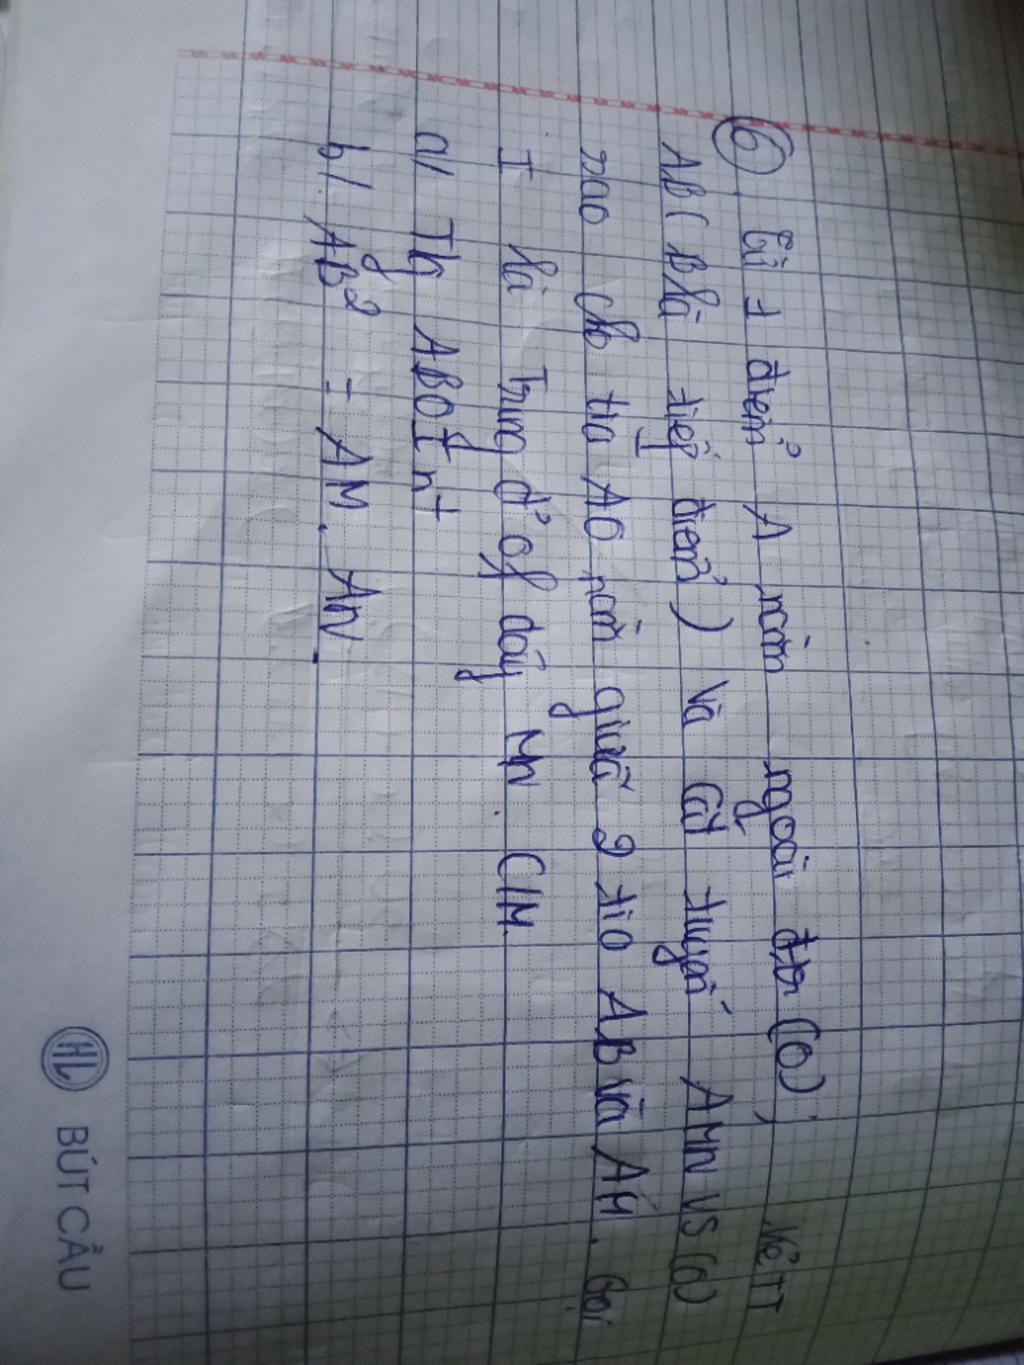 ⑥ Từ 1 điểm A nằm ngoài đtr (O), Kẻ TT
AB (B là tiếp điểm) và cát tuyến AMN vs (O)
sao cho tia AO nằm giữa 2 tia AB và AM. Gọi
I là Trung đ' of dây MN. C/M
a/ Tg ABOI nt
b/ AB² = AM. AN.
HL BÚT CẦU